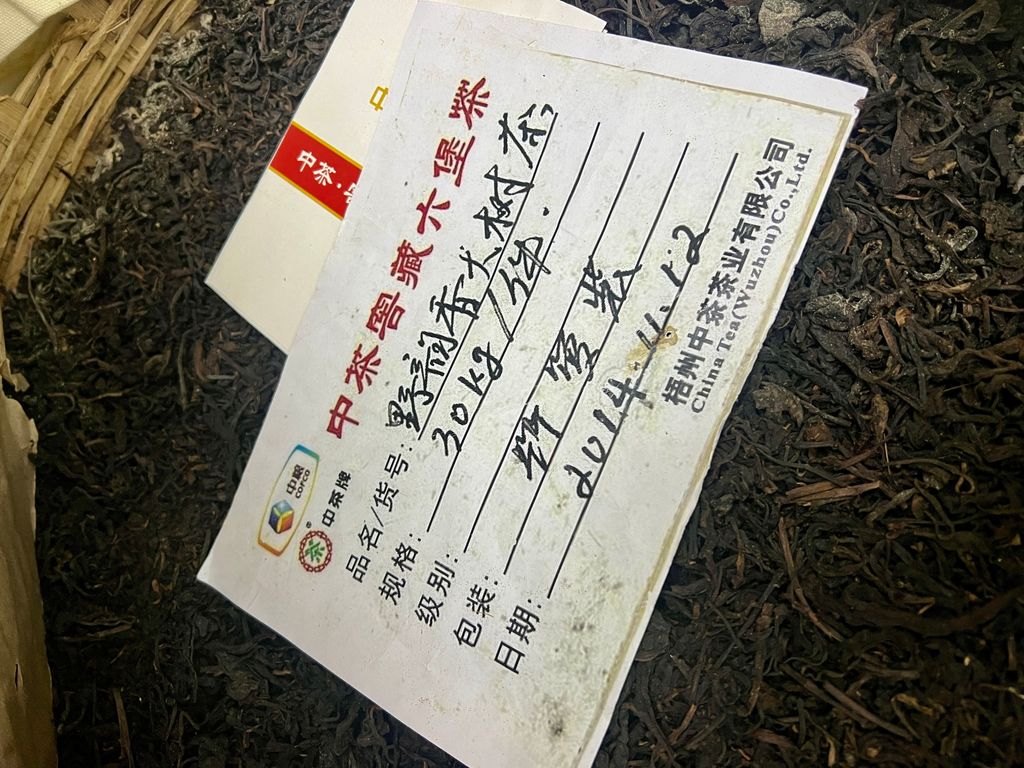 中
中茶·
中茶窖藏六堡茶
中粮
COFCO
茶
®
中茶牌
品名/货号: 野韵香大树茶
规格: 30kg/件.
级别:
包装: 竹箩装
日期: 2014.11.12
梧州中茶茶业有限公司
China Tea(Wuzhou)Co.,Ltd.